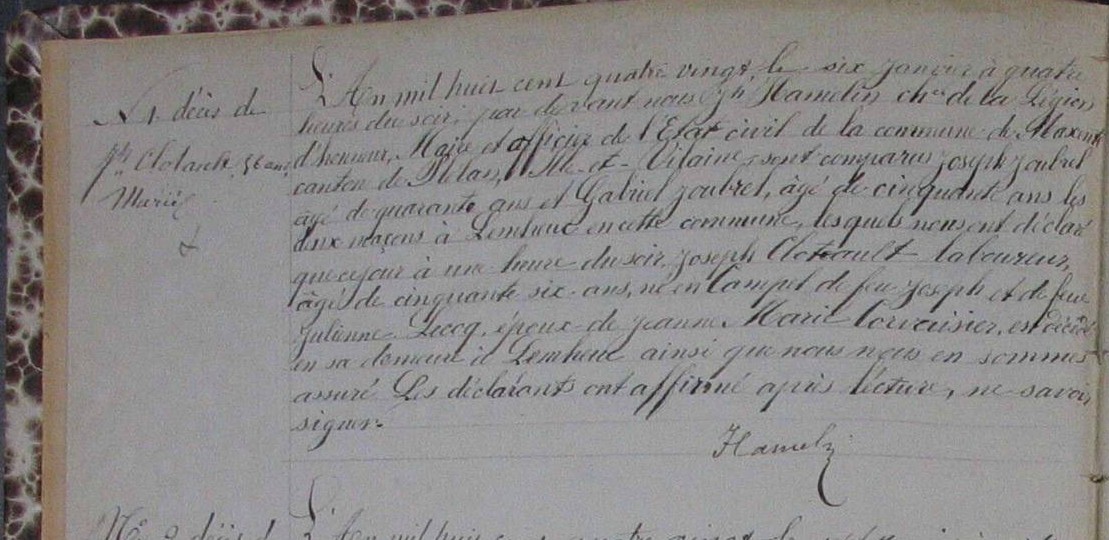 N 1 décès de
Jh Clotault, 56 ans,
Marié
L'An mil huit cent quatre vingt, le six Janvier à quatre
heures du soir, par devant nous Jh Hamelin cher de la Légion
d'honneur, Maire et officier de l'Etat civil de la commune de Maxent
canton de Plélan, Ille-et-Vilaine, sont comparus Joseph Joubrel
âgé de quarante ans et Gabriel Joubrel, âgé de cinquante ans les
deux maçons à Lemheuc en cette commune, lesquels nous ont déclaré
que ce jour à une heure du soir, Joseph Clotault laboureur,
âgé de cinquante six ans, né en Campel de feu Joseph et de feue
Julienne Lecoq, époux de Jeanne Marie Corvaisier, est décédé
en sa demeure à Lemheuc ainsi que nous nous en sommes
assuré. Les déclarants ont affirmé après lecture, ne savoir
signer.
Hamelin
Nº 2 décès d
L'An mil huit cent quatre vingt, le